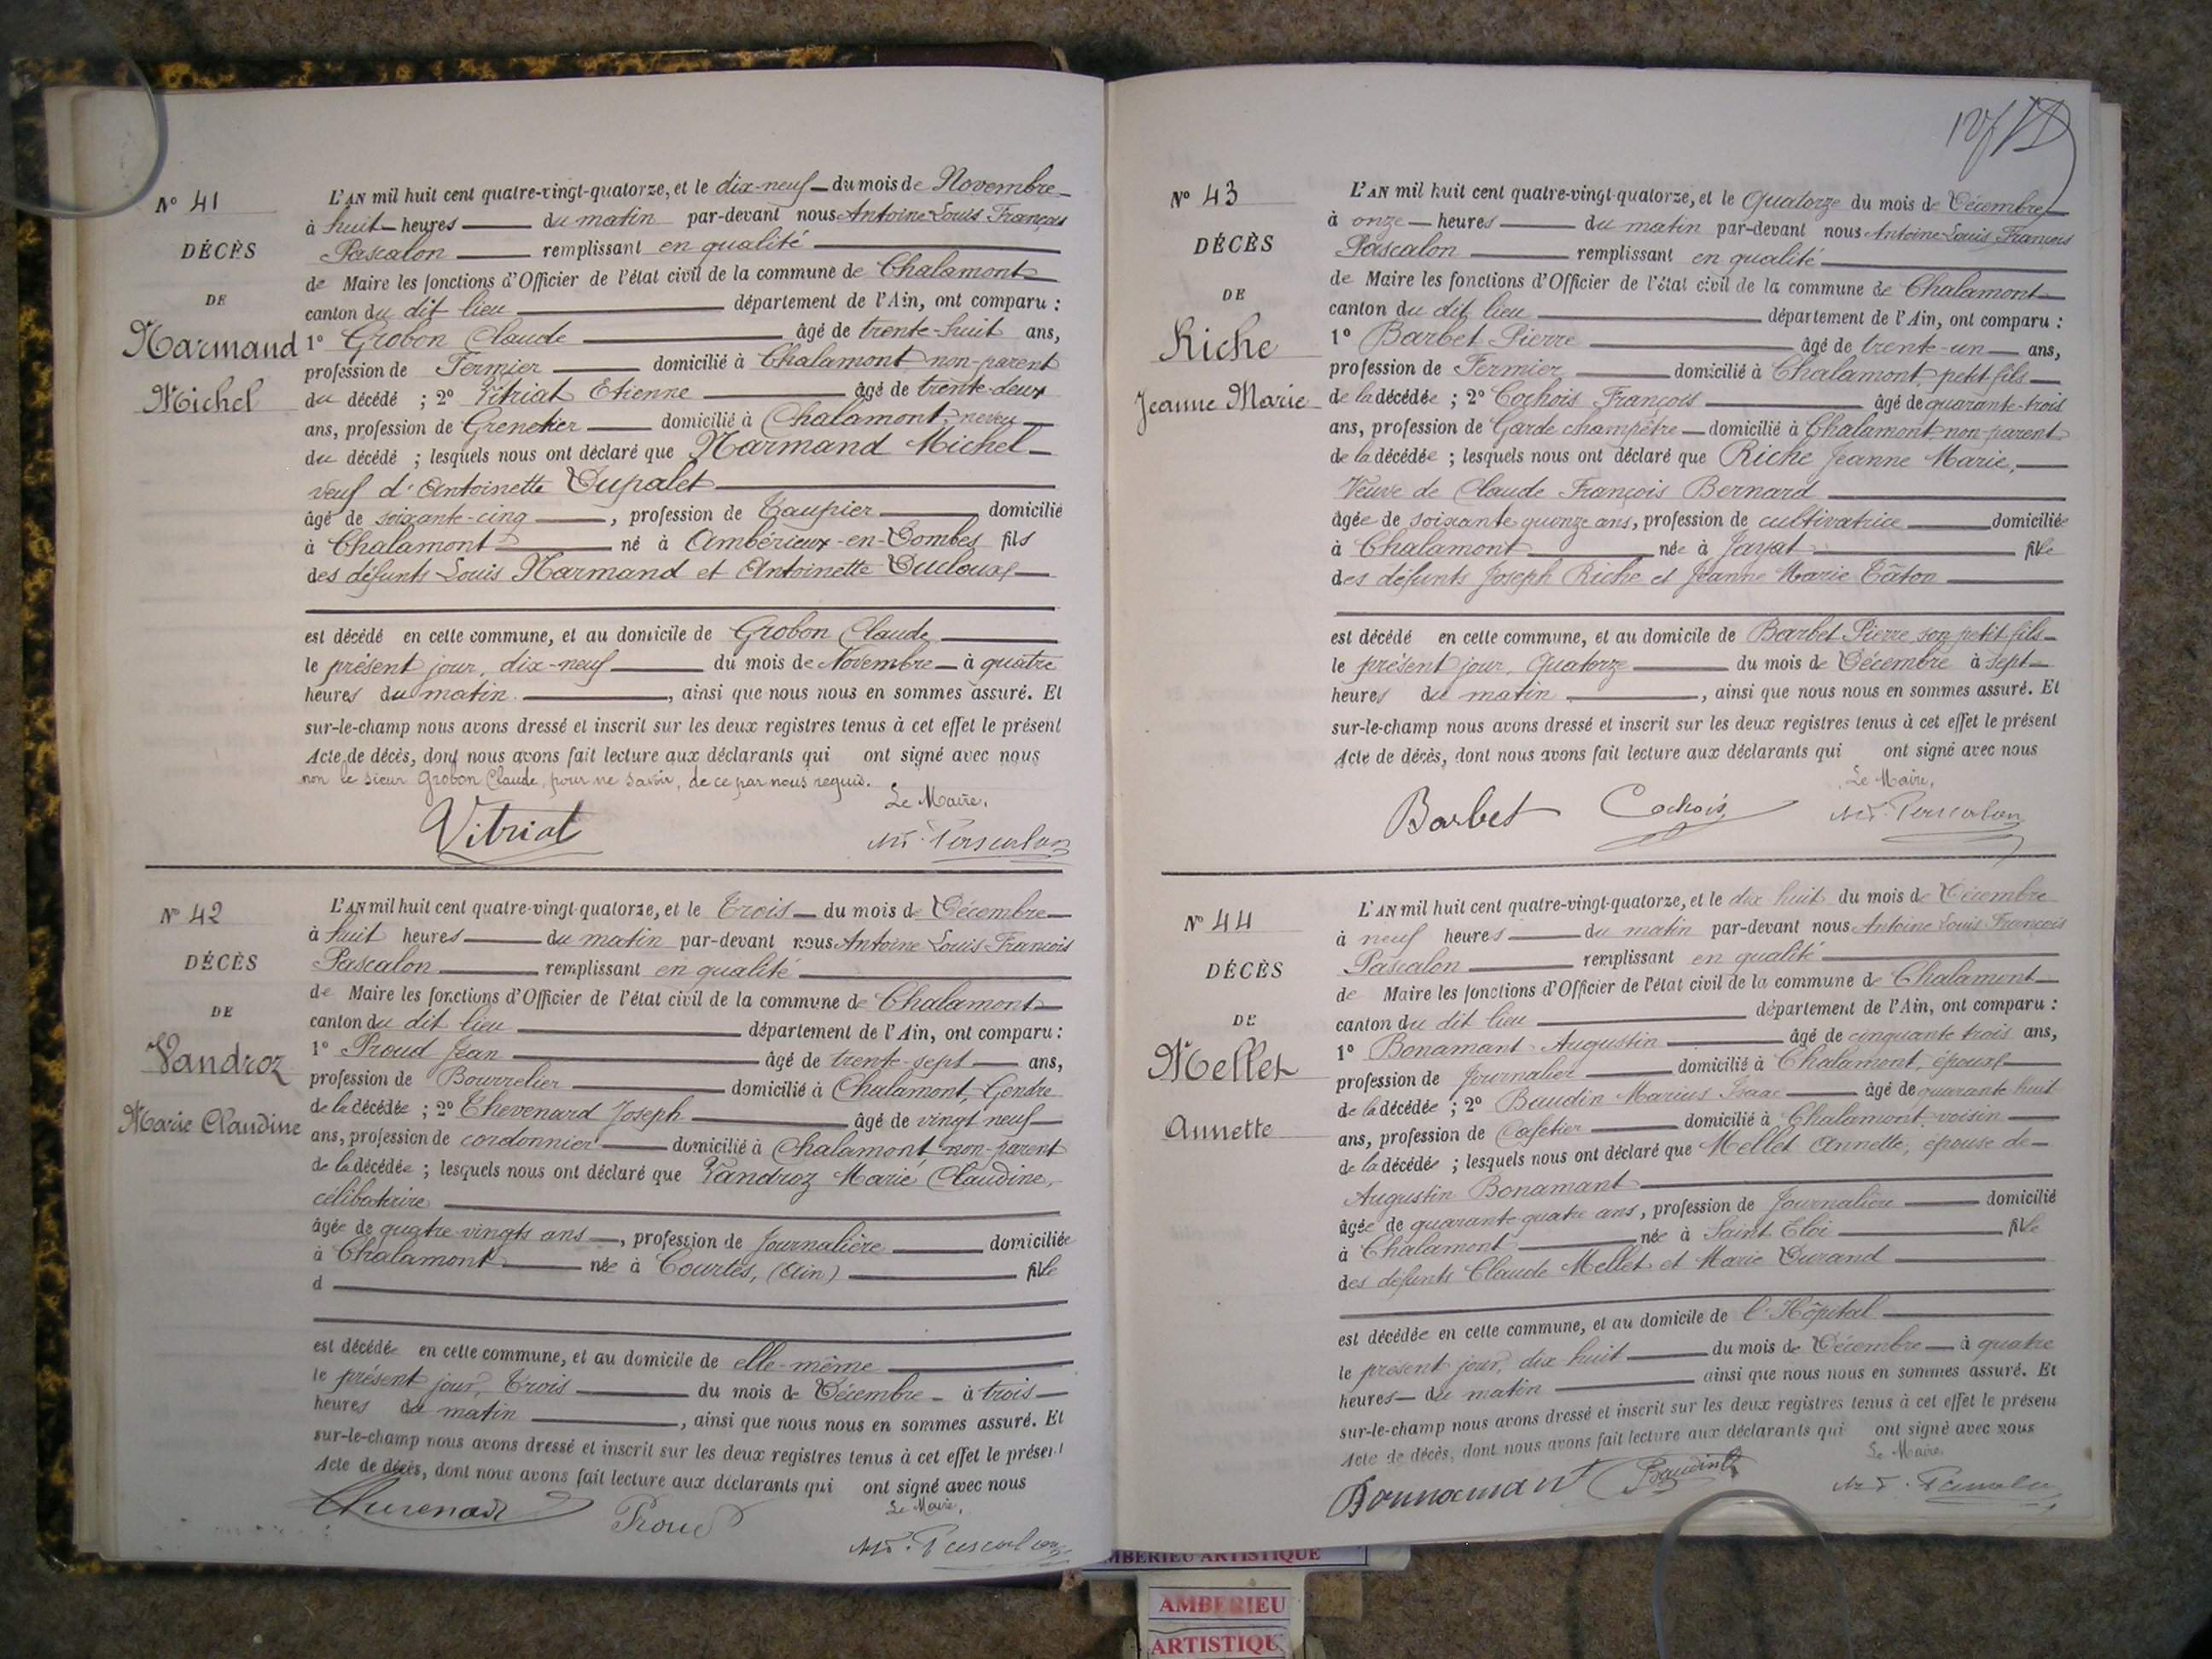 N° 41
DÉCÈS
DE
Marmand
Michel
L'AN mil huit cent quatre-vingt-quatorze, et le dix-neuf du mois de Novembre
à huit heures du matin par-devant nous Antoine Louis François
Pascalon remplissant en qualité
de Maire les fonctions d'Officier de l'état civil de la commune de Chalamont
canton du dit lieu département de l'Ain, ont comparu :
1° Grobon Claude âgé de trente-huit ans,
profession de Fermier domicilié à Chalamont, non-parent
du décédé ; 2° Vitriat Etienne âgé de trente-deux
ans, profession de Grenetier domicilié à Chalamont, neveu
du décédé ; lesquels nous ont déclaré que Marmand Michel
veuf d'Antoinette Dupalet
âgé de soixante-cinq , profession de Taupier domicilié
à Chalamont né à Ambérieux-en-Dombes fils
des défunts Louis Marmand et Antoinette Ducloux
est décédé en cette commune, et au domicile de Grobon Claude
le présent jour, dix-neuf du mois de Novembre à quatre
heures du matin , ainsi que nous nous en sommes assuré. Et
sur-le-champ nous avons dressé et inscrit sur les deux registres tenus à cet effet le présent
Acte de décès, dont nous avons fait lecture aux déclarants qui ont signé avec nous
non le sieur Grobon Claude, pour ne savoir, de ce par nous requis.
Le Maire,
Vitriat
Pascalon
N° 42
DÉCÈS
DE
Vandroz
Marie Claudine
L'AN mil huit cent quatre-vingt-quatorze, et le Trois du mois de Décembre
à huit heures du matin par-devant nous Antoine Louis François
Pascalon remplissant en qualité
de Maire les fonctions d'Officier de l'état civil de la commune de Chalamont
canton du dit lieu département de l'Ain, ont comparu :
1° Proud Jean âgé de trente-sept ans,
profession de Bourrelier domicilié à Chalamont, Gendre
de la décédée ; 2° Thevenard Joseph âgé de vingt neuf
ans, profession de cordonnier domicilié à Chalamont, non-parent
de la décédée ; lesquels nous ont déclaré que Vandroz Marie Claudine,
célibataire
âgée de quatre-vingts ans , profession de Journalière domiciliée
à Chalamont née à Courtes, (Ain) fille
d
est décédée en cette commune, et au domicile de elle-même
le présent jour, Trois du mois de Décembre à trois
heures du matin , ainsi que nous nous en sommes assuré. Et
sur-le-champ nous avons dressé et inscrit sur les deux registres tenus à cet effet le présent
Acte de décès, dont nous avons fait lecture aux déclarants qui ont signé avec nous
Le Maire,
Thevenard Proud
Pascalon
N° 43
DÉCÈS
DE
Riche
Jeanne Marie
L'AN mil huit cent quatre-vingt-quatorze, et le Quatorze du mois de Décembre
à onze heures du matin par-devant nous Antoine Louis François
Pascalon remplissant en qualité
de Maire les fonctions d'Officier de l'état civil de la commune de Chalamont
canton du dit lieu département de l'Ain, ont comparu :
1° Barbet Pierre âgé de trente-un ans,
profession de Fermier domicilié à Chalamont, petit fils
de la décédée ; 2° Cochois François âgé de quarante-trois
ans, profession de Garde champêtre domicilié à Chalamont, non-parent
de la décédée ; lesquels nous ont déclaré que Riche Jeanne Marie,
Veuve de Claude François Bernard
âgée de soixante quinze ans, profession de cultivatrice domiciliée
à Chalamont née à Jayat fille
des défunts Joseph Riche et Jeanne Marie Tâton
est décédé en cette commune, et au domicile de Barbet Pierre, son petit fils
le présent jour, Quatorze du mois de Décembre à sept
heures du matin , ainsi que nous nous en sommes assuré. Et
sur-le-champ nous avons dressé et inscrit sur les deux registres tenus à cet effet le présent
Acte de décès, dont nous avons fait lecture aux déclarants qui ont signé avec nous
Le Maire,
Barbet Cochois
Pascalon
N° 44
DÉCÈS
DE
Mellet
Annette
L'AN mil huit cent quatre-vingt-quatorze, et le dix huit du mois de Décembre
à neuf heures du matin par-devant nous Antoine Louis François
Pascalon remplissant en qualité
de Maire les fonctions d'Officier de l'état civil de la commune de Chalamont
canton du dit lieu département de l'Ain, ont comparu :
1° Bonamant Augustin âgé de cinquante trois ans,
profession de Journalier domicilié à Chalamont, époux
de la décédée ; 2° Baudin Marius Isaac âgé de quarante huit
ans, profession de Cafetier domicilié à Chalamont, voisin
de la décédée ; lesquels nous ont déclaré que Mellet Annette, épouse de
Augustin Bonamant
âgée de quarante quatre ans, profession de Journalière domicilié
à Chalamont née à Saint Eloi fille
des défunts Claude Mellet et Marie Durand
est décédée en cette commune, et au domicile de l'Hôpital
le présent jour, dix huit du mois de Décembre à quatre
heures du matin ainsi que nous nous en sommes assuré. Et
sur-le-champ nous avons dressé et inscrit sur les deux registres tenus à cet effet le présent
Acte de décès, dont nous avons fait lecture aux déclarants qui ont signé avec nous
Le Maire,
Bonnamant Baudin
Pascalon
MBERIEU ARTISTIQUE
AMBERIEU
ARTISTIQU